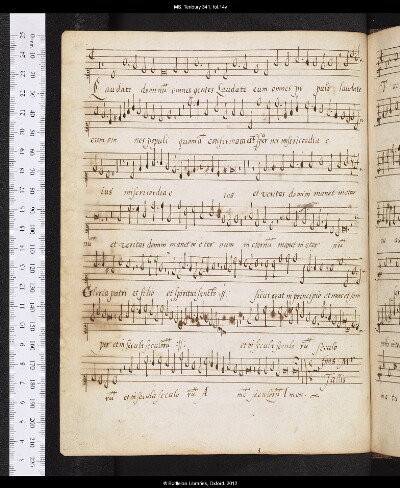 MS. Tenbury 341, fol.14v
Laudate dominū omnes gentes Laudate eum omnes po puli laudate
eum om nes populi quoniā confirmata est super nos misericordia e
ius misericordia e ius et veritas domini manet in eter
nū et veritas domini manet in eter num in eternū manet in eter nū
Gloria patri et filio et spiritui sancto sicut erat in principio et nunc et sem
per et in secula seculorū et in secula seculo rū seculo
rū et in secula seculo rū A me seculorū Amen
fons Mr
Tallis
© Bodleian Libraries, Oxford, 2012